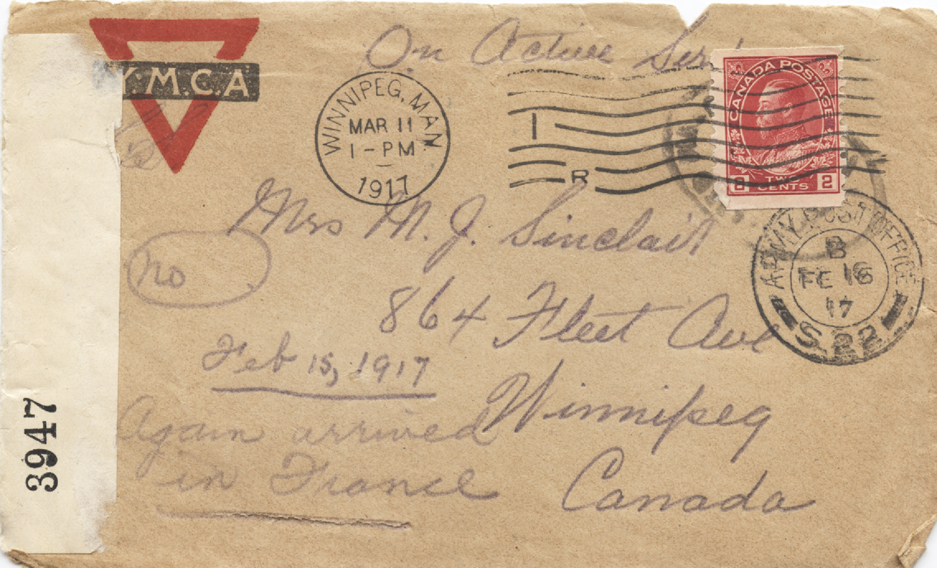 On Active Ser
Y.M.C.A
WINNIPEG, MAN.
MAR 11
1-PM
1917
I
R
CANADA POSTAGE
2 TWO CENTS 2
ARMY POST OFFICE
B
FE 16
17
S.22
Mrs M. J. Sinclair
no
864 Fleet Ave
Feb 15, 1917
Winnipeg
Again arrived
in France
Canada
3947